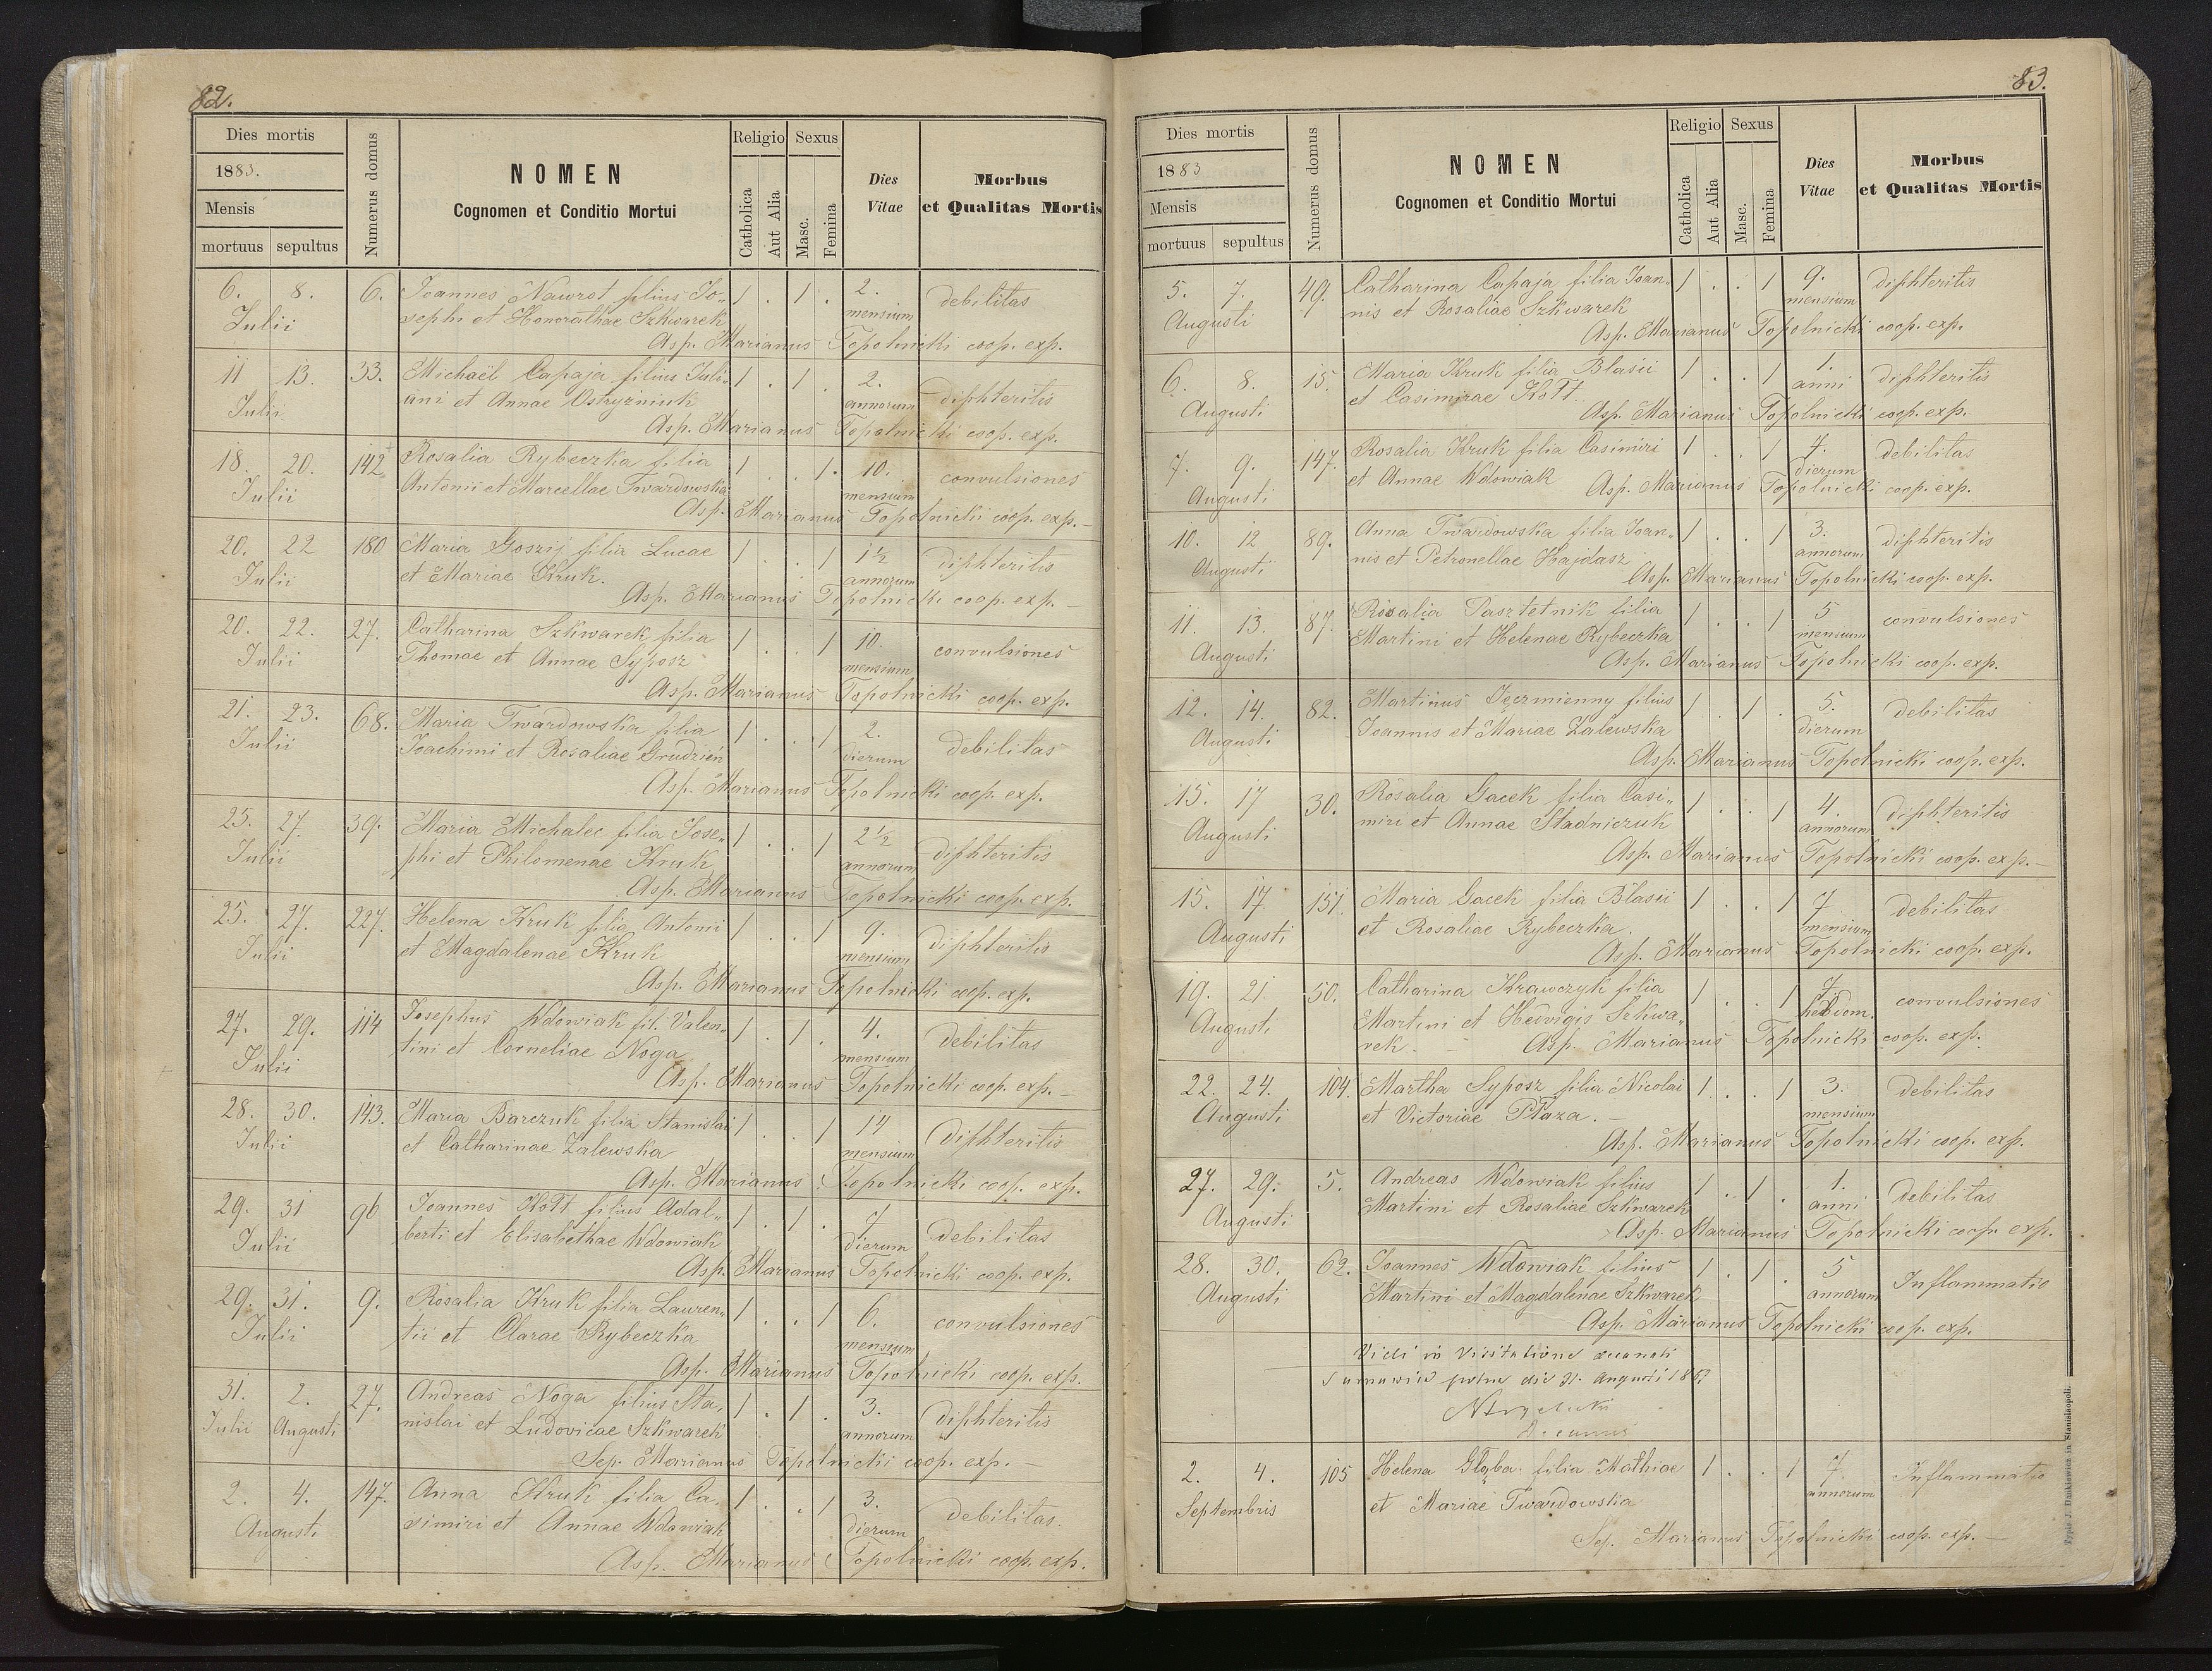 82.
Dies mortis
1883.
Mensis
mortuus sepultus
Numerus domus
NOMEN
Cognomen et Conditio Mortui
Religio
Catholica
Aut Alia
Sexus
Masc.
Femina
Dies
Vitae
Morbus
et Qualitas Mortis
6. 8. 6. Joannes Nawrot filius Jo„ 1 . 1 . 2. debilitas
Julii sephi et Honorathae Szkwarek mensium
Asp. Marianus Topolnicki coop. exp.
11 13. 33. Michaël Capaja filius Juli„ 1 . 1 . 2. diphteritis
Julii ani et Annae Ostryzniuk annorum
Asp. Marianus Topolnicki coop. exp.
18. 20. 142 Rosalia Rybeczka filia 1 . . 1. 10. convulsiones
Julii Antonii et Marcellae Twardowska mensium
Asp. Marianus Topolnicki coop. exp.
20. 22 180 Maria Goszij filia Lucae 1 . . 1 1½ diphteritis
Julii et Mariae Kruk. annorum
Asp. Marianus Topolnicki coop. exp.
20. 22. 27. Catharina Szkwarek filia 1 . . 1 10. convulsiones
Julii Thomae et Annae Syposz mensium
Asp. Marianus Topolnicki coop. exp.
21. 23. 68. Maria Twardowska filia 1 . . 1 2. debilitas
Julii Joachimi et Rosaliae Grudzień dierum
Asp. Marianus Topolnicki coop. exp.
25. 27. 39. Maria Michalec filia Jose„ 1 . . 1 2½ diphteritis
Julii phi et Philomenae Kruk annorum
Asp. Marianus Topolnicki coop. exp.
25. 27. 227. Helena Kruk filia Antonii 1 . . 1 9. diphteritis
Julii et Magdalenae Kruk mensium
Asp. Marianus Topolnicki coop. exp.
27. 29. 114 Josephus Wdowiak fil. Valen„ 1 . 1 . 4. debilitas
Julii tini et Corneliae Noga mensium
Asp. Marianus Topolnicki coop. exp.
28. 30. 143. Maria Barczuk filia Stanislai 1 . . 1 14 diphteritis
Julii et Catharinae Zalewska mensium
Asp. Marianus Topolnicki coop. exp.
29. 31 96 Joannes Kott filius Adal„ 1 . 1 . 7 debilitas
Julii berti et Elisabethae Wdowiak dierum
Asp. Marianus Topolnicki coop. exp.
29. 31. 9. Rosalia Kruk filia Lauren„ 1 . . 1 6. convulsiones
Julii tii et Clarae Rybeczka mensium
Asp. Marianus Topolnicki coop. exp.
31. 2. 27. Andreas Noga filius Sta„ 1 . 1 . 3. diphteritis
Julii Augusti nislai et Ludovicae Szkwarek annorum
Sep. Marianus Topolnicki coop. exp.
2. 4. 147. Anna Kruk filia Ca„ 1 . . 1 3. debilitas
Augusti simiri et Annae Wdowiak dierum
Asp. Marianus Topolnicki coop. exp.
83.
Dies mortis
1883
Mensis
mortuus sepultus
Numerus domus
NOMEN
Cognomen et Conditio Mortui
Religio
Catholica
Aut Alia
Sexus
Masc.
Femina
Dies
Vitae
Morbus
et Qualitas Mortis
5. 7. 49. Catharina Capaja filia Joan„ 1 . . 1 9. diphteritis
Augusti nis et Rosaliae Szkwarek mensium
Asp. Marianus Topolnicki coop. exp.
6. 8. 15. Maria Kruk filia Blasii 1 . . 1 1. diphteritis
Augusti et Casimirae Kott. anni
Asp. Marianus Topolnicki coop. exp.
7. 9. 147. Rosalia Kruk filia Casimiri 1 . . 1 7. debilitas
Augusti et Annae Wdowiak dierum
Asp. Marianus Topolnicki coop. exp.
10. 12 89. Anna Twardowska filia Joan„ 1 . . 1 3. diphteritis
Augusti nis et Petronellae Hajdasz annorum
Asp. Marianus Topolnicki coop. exp.
11. 13. 87. Rosalia Pasztetnik filia 1 . . 1 5 convulsiones
Augusti Martini et Helenae Rybeczka mensium
Asp. Marianus Topolnicki coop. exp.
12. 14. 82. Martinus Jęczmienny filius 1 . 1 . 5. debilitas
Augusti Joannis et Mariae Zalewska dierum
Asp. Marianus Topolnicki coop. exp.
15. 17 30. Rosalia Gacek filia Casi„ 1 . . 1 4. diphteritis
Augusti miri et Annae Stadniczuk annorum
Asp. Marianus Topolnicki coop. exp.
15. 17 151. Maria Gacek filia Blasii 1 . . 1 7 debilitas
Augusti et Rosaliae Rybeczka. mensium
Asp. Marianus Topolnicki coop. exp.
19. 21 50. Catharina Krawczyk filia 1 . . 1 7. convulsiones
Augusti Martini et Hedvigis Szkwa„ hebdom.
rek. Asp. Marianus Topolnicki coop. exp.
22. 24. 104. Martha Syposz filia Nicolai 1 . . 1 3. debilitas
Augusti et Victoriae Płaza. mensium
Asp. Marianus Topolnicki coop. exp.
27. 29. 5. Andreas Wdowiak filius 1 . 1 . 1. debilitas
Augusti Martini et Rosaliae Szkwarek anni
Asp. Marianus Topolnicki coop. exp.
28. 30. 62. Joannes Wdowiak filius 1 . 1 . 5 Inflammatio
Augusti Martini et Magdalenae Szkwarek annorum
Asp. Marianus Topolnicki coop. exp.
Vidi in Visitatione decanali
die 31. Augusti
Decanus
2. 4. 105 Helena Głąba filia Mathiae 1 . . 1 7. Inflammatio
Septembris et Mariae Twardowska annorum
Sep. Marianus Topolnicki coop. exp.
Typis J. Dankiewicz in Stanislaopoli.